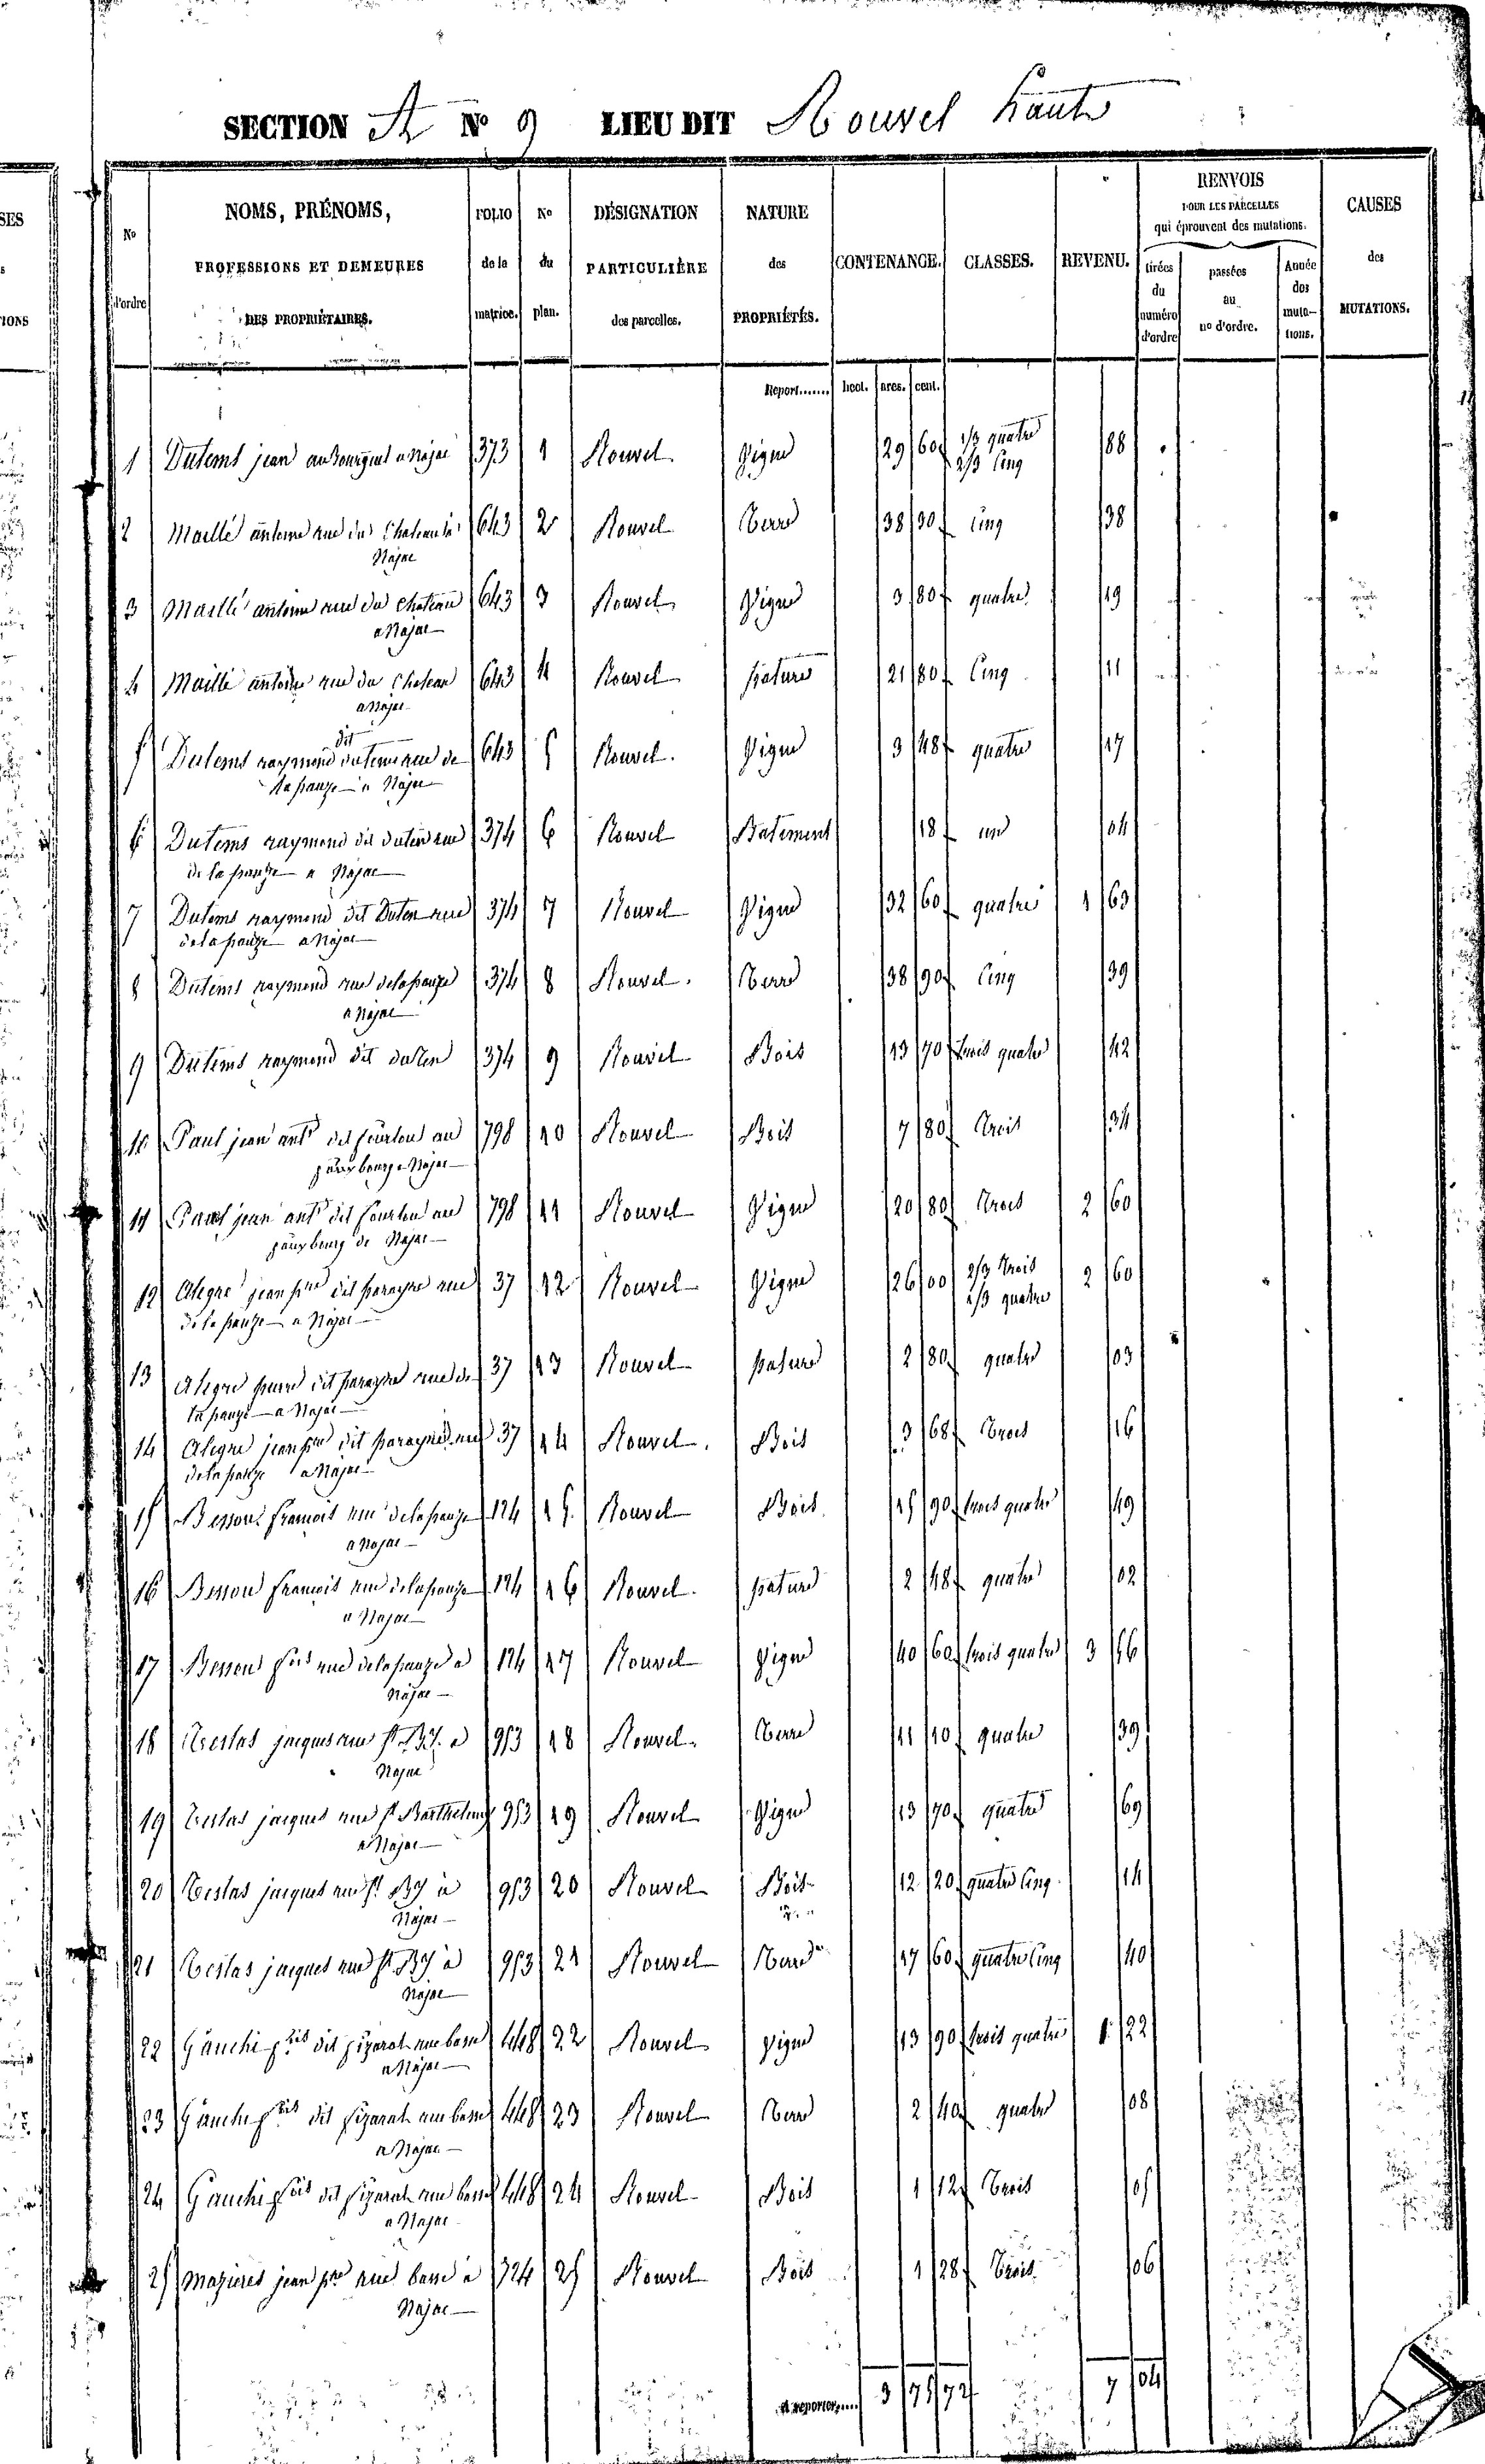 SECTION A No 9 LIEU DIT Rouvel haute
No d'ordre
NOMS, PRÉNOMS,
PROFESSIONS ET DEMEURES
DES PROPRIÉTAIRES.
FOLIO de la matrice.
No du plan.
DÉSIGNATION
PARTICULIÈRE
des parcelles.
NATURE
des
PROPRIÉTÉS.
CONTENANCE.
CLASSES.
REVENU.
RENVOIS
POUR LES PARCELLES
qui éprouvent des mutations.
tirées du numéro d'ordre
passées au no d'ordre.
Année des mutations.
CAUSES
des
MUTATIONS.
Report....... hect. ares. cent.
1 Dutems jean a Najac 373 1 Rouvel Vigne 29 60 1/3 quatre 88
2/3 Cinq
2 Maillé antoine rue du Chateau à 643 2 Rouvel Terre 38 30 Cinq 38
Najac
3 Maillé antoine rue du Chateau 643 3 Rouvel Vigne 3 80 quatre 19
a Najac
4 Maillé antoine rue du Chateau 643 4 Rouvel pature 21 80 Cinq 11
a Najac
5 Dutems raymond dit rue de 643 5 Rouvel Vigne 3 48 quatre 17
la pauze a Najac
6 Dutems raymond dit duten rue 374 6 Rouvel Batiment 18 un 04
de la pauze a Najac
7 Dutems raymond dit Duten rue 374 7 Rouvel Vigne 32 60 quatre 1 63
de la pauze a Najac
8 Dutems raymond rue de la pauze 374 8 Rouvel Terre 38 90 Cinq 39
a Najac
9 Dutems raymond dit duten 374 9 Rouvel Bois 13 70 trois quatre 42
10 Paul jean ant dit au 798 10 Rouvel Bois 7 80 trois 34
faux bourg a Najac
11 Paul jean ant dit au 798 11 Rouvel Vigne 20 80 trois 2 60
faux bourg de Najac
12 Alegre jean pre dit parayre rue 37 12 Rouvel Vigne 26 00 2/3 trois 2 60
1/3 quatre
de la pauze a Najac
13 Alegre pierre dit parayre rue de 37 13 Rouvel pature 2 80 quatre 03
la pauze a Najac
14 Alegre jean pre dit parayre rue 37 14 Rouvel Bois 3 68 trois 16
de la pauze a Najac
15 Besson francois rue de la pauze 124 15 Rouvel Bois 15 90 trois quatre 49
a Najac
16 Besson francois rue de la pauze 124 16 Rouvel pature 2 48 quatre 02
a Najac
17 Besson fcois rue de la pauze a 124 17 Rouvel Vigne 40 60 trois quatre 3 56
Najac
18 Testas jacques rue St By a 953 18 Rouvel Terre 11 10 quatre 39
Najac
19 Testas jacques rue St Barthelemy 953 19 Rouvel Vigne 13 70 quatre 69
a Najac
20 Testas jacques rue St By a 953 20 Rouvel Bois 12 20 quatre Cinq 14
Najac
21 Testas jacques rue St By a 953 21 Rouvel Terre 17 60 quatre Cinq 40
Najac
22 Gauchi fcois dit rue basse 448 22 Rouvel Vigne 13 90 trois quatre 1 22
a Najac
23 Gauchi fcois dit rue basse 448 23 Rouvel Terre 2 40 quatre 08
a Najac
24 Gauchi fcois dit rue basse 448 24 Rouvel Bois 1 12 trois 05
a Najac
25 Mazieres jean pre rue basse a 724 25 Rouvel Bois 1 28 trois 06
Najac
A reporter...... 3 75 72 7 04